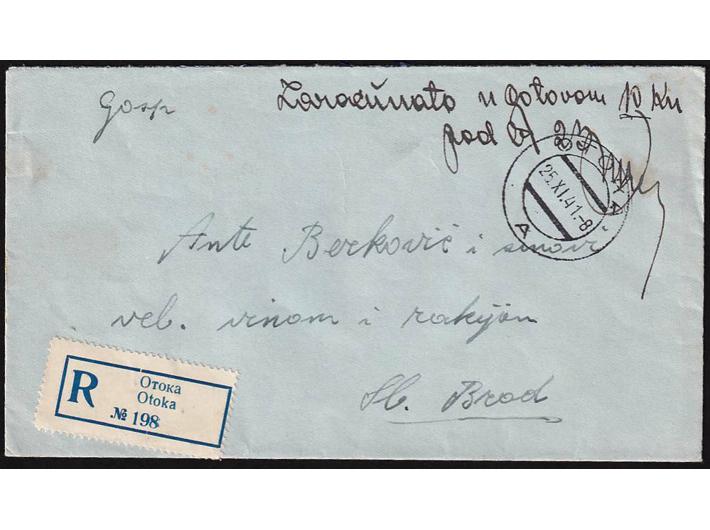 Zaračunato u gotovom 10 Kn
pod
Gosp
25.XI.41.-8
A
Ante Berković i sinovi
vel. vinom i rakijom
Sl. Brod
R
Отока
Otoka
№ 198